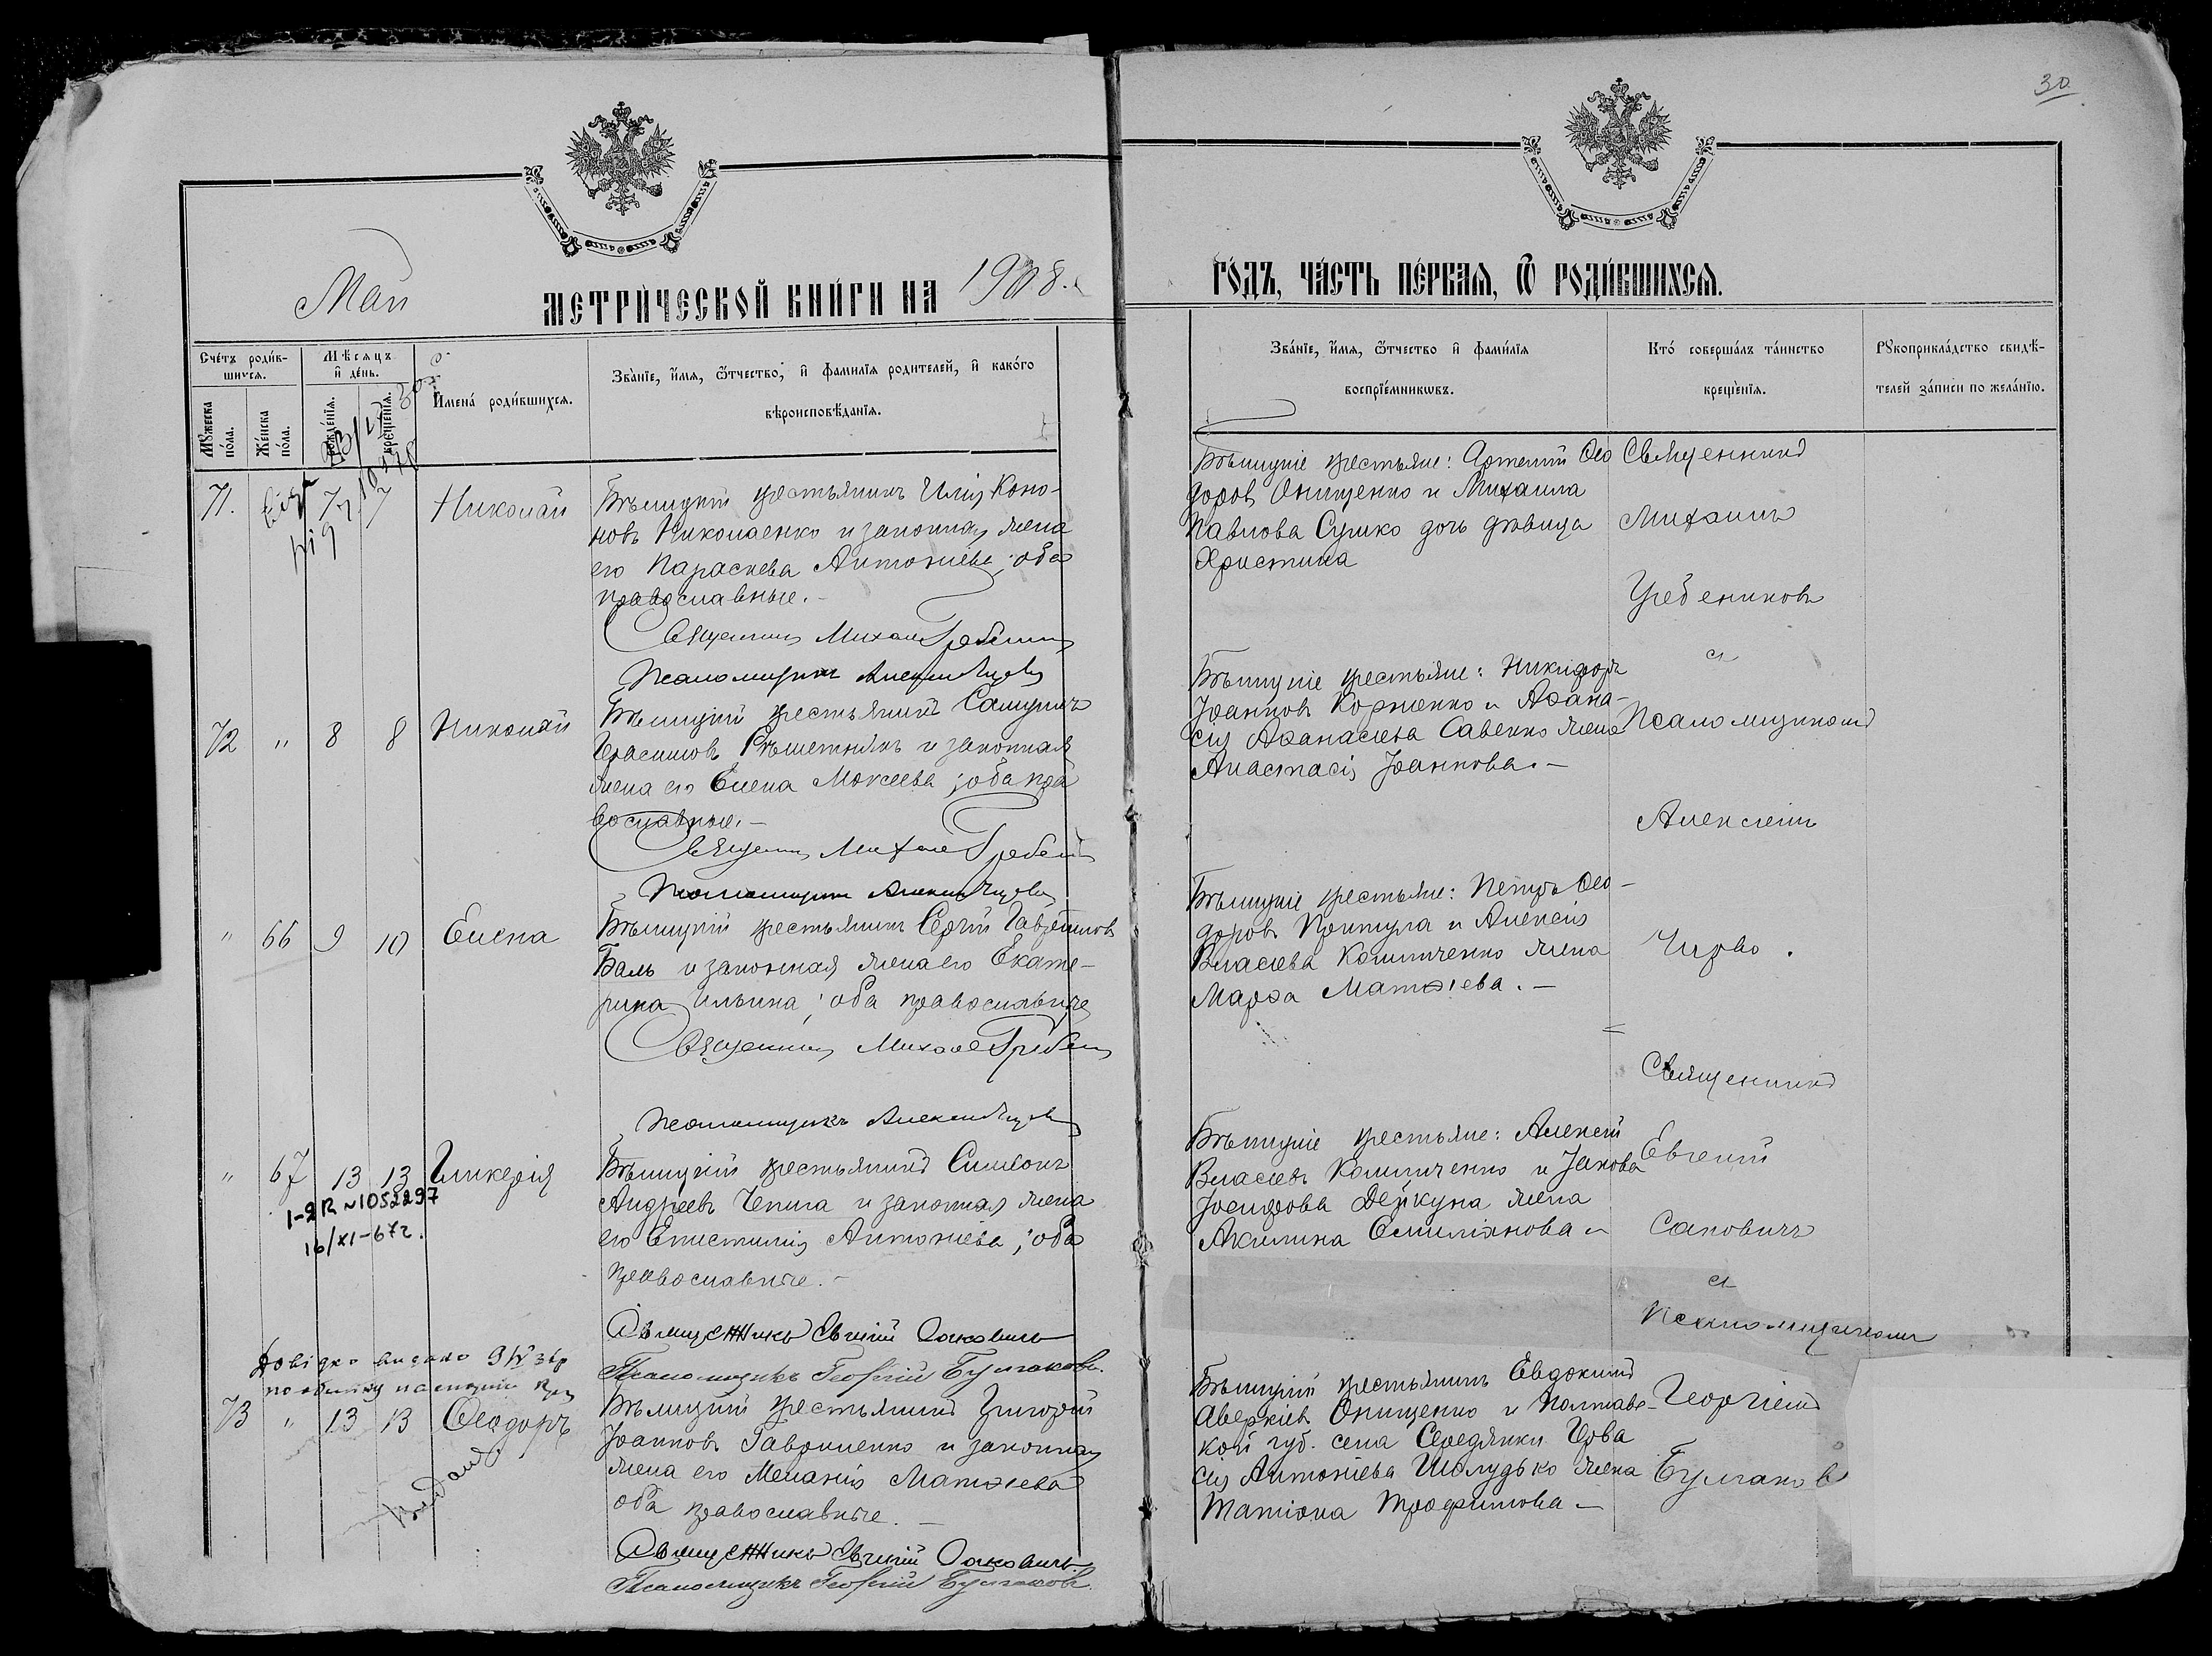 30
Май
МЕТРИЧЕСКОЙ КНИГИ НА 1908.
ГОДЪ, ЧАСТЬ ПЕРВАЯ, Ѿ РОДИВШИХСЯ.
Счетъ родив-
шихся.
Мѣсяцъ
и день.
Мужеска
пола.
Женска
пола.
рожденїя.
крещенїя.
Имена родившихся.
Званїе, имя, ѿчество, и фамилїя родителей, и какого
вѣроисповѣданїя.
Званїе, имя, ѿчество и фамилїя
воспрїемникѡвъ.
Кто совершалъ таинство
крещенїя.
Рукоприкладство свидѣ-
телей записи по желанїю.
71. 7 7 Николай
Бѣлицкій крестьянинъ Илія Коно-
новъ Николаенко и законная жена
его Параскева Антоніева; оба
православные. -
Священникъ Михаил Гребенник
Псаломщикъ Алексѣй
Бѣлицкіе крестьяне: Артемій Ѳео
доровъ Онищенко и Михаила
Павлова Сушко дочь дѣвица
Христина
Священникъ
Михаилъ
Гребениковъ
и
72 " 8 8 Николай
Бѣлицкій крестьянинъ Самуилъ
Герасимовъ Рѣшетнякъ и законная
жена его Елена Моисеева; оба пра
вославные. -
Священник Михаил Гребенник
Псаломщикъ Алексѣй
Бѣлицкіе крестьяне: Никифоръ
Іоанновъ Корненко и Аѳана-
сія Аѳанасіева Савенко жена
Анастасія Іоаннова. -
Псаломщикомъ
Алексіемъ
" 66 9 10 Елена
Бѣлицкій крестьянинъ Сергій Гавріиловъ
Баль и законная жена его Екате-
рина Ильина; оба православные
Священникъ Михаил Гребенник
Псаломщикъ Алексѣй
Бѣлицкіе крестьяне: Петръ Ѳео-
доровъ Притула и Алексія
Власіева Калиниченко жена
Марѳа Матѳіева. -
Чирво.
Священникъ
" 67 13 13 Гликерія
1-2R №1052297
16/XI-67г.
Бѣлицкій крестьянинъ Симеонъ
Андреевъ Чепига и законная жена
его Епистимія Антоніева; оба
православные. -
Священникъ Евгеній Сакович
Псаломщикъ Георгій Булгаковъ.
Бѣлицкіе крестьяне: Алексій
Власіевъ Калиниченко и Іакова
Іосифова Дейкуна жена
Акилина Емиліанова -
Евгеній
Саковичъ
и
Псаломщикомъ
73 " 13 13 Ѳеодоръ
Бѣлицкій крестьянинъ Григорій
Іоанновъ Гавриленко и законная
жена его Меланія Матѳіева
оба православные. -
Священникъ Евгеній Сакович
Псаломщикъ Георгій Булгаковъ.
Бѣлицкій крестьянинъ Евдокимъ
Аверкіевъ Онищенко и Полтавс-
кой губ. села Середянки Герва
сія Антоніева Шолудько жена
Татіана Трофимова -
Георгіемъ
Булгаков